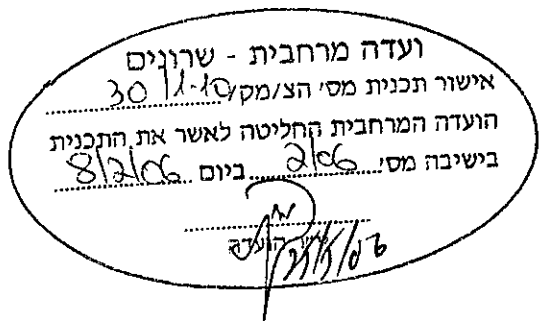 ועדה מרחבית - שרונים
אישור תכנית מס' הצ/מק/ 30/1-10
הועדה המרחבית החליטה לאשר את התכנית
בישיבה מס' 2/06 ביום 8/2/06
הועדה